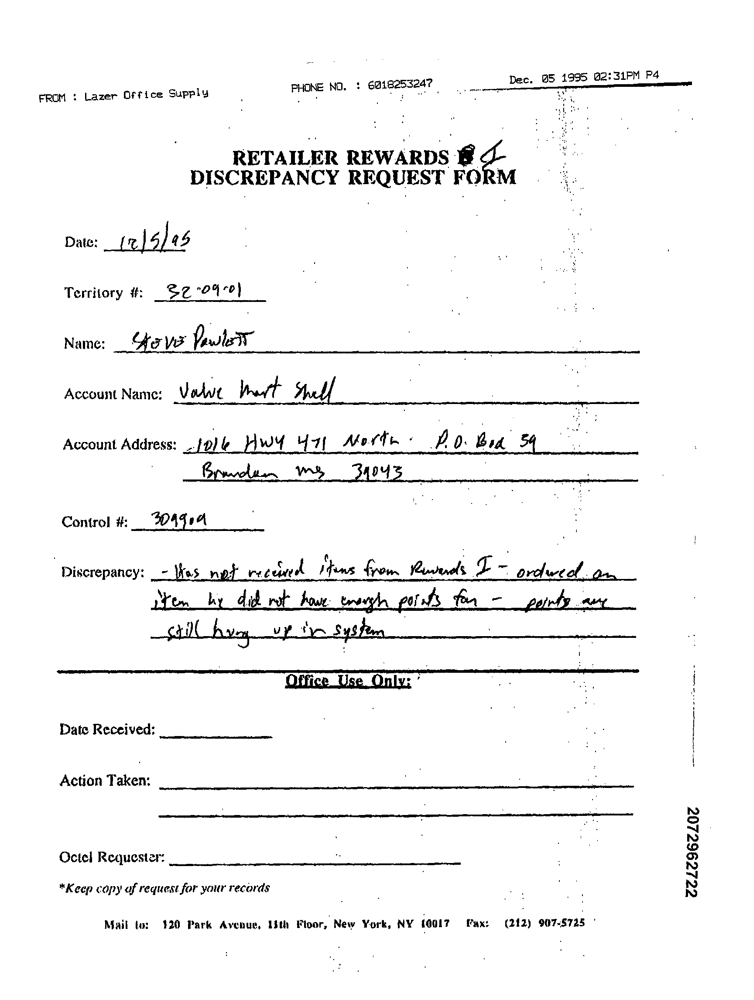 FROM : Lazer Office Supply PHONE NO. : 6018253247 Dec. 05 1995 02:31PM P4
RETAILER REWARDS I
DISCREPANCY REQUEST FORM
Date: 12/5/95
Territory #: 32-09-01
Name: Steve Pawlett
Account Name: Value Mart Shell
Account Address: 1016 HWY 471 North. P.O. Box 59
Brandon ms 39043
Control #: 309909
Discrepancy: - Has not received items from Rewards I - ordered an
item he did not have enough points for - points are
still hung up in system
Office Use Only:
Date Received:
Action Taken:
Octel Requester:
*Keep copy of request for your records
Mail to: 120 Park Avenue, 11th Floor, New York, NY 10017 Fax: (212) 907-5725
2072962722